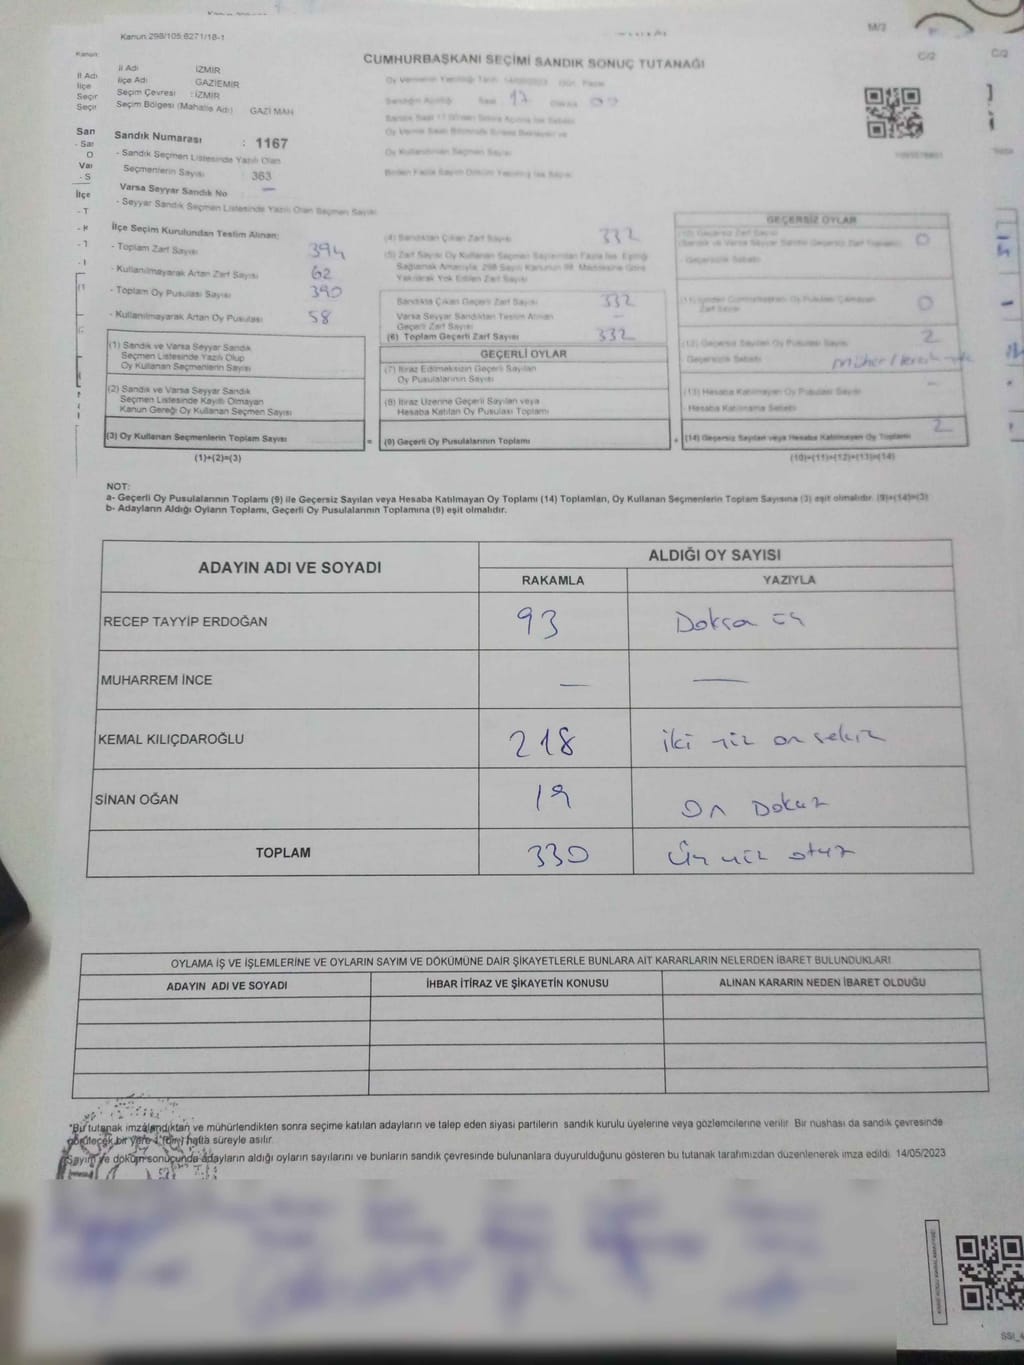 Kanun:298/105 6271/18-1
M/2
C/2
C/2
CUMHURBAŞKANI SEÇİMİ SANDIK SONUÇ TUTANAĞI
İl Adı İZMİR
İlçe Adı GAZİEMİR
Seçim Çevresi : İZMİR
Seçim Bölgesi (Mahalle Adı) GAZİ MAH
Sandık Numarası : 1167
- Sandık Seçmen Listesinde Yazılı Olan
Seçmenlerin Sayısı 363
Varsa Seyyar Sandık No —
- Seyyar Sandık Seçmen Listesinde Yazılı Olan Seçmen Sayısı
İlçe Seçim Kurulundan Teslim Alınan:
- Toplam Zarf Sayısı 394
- Kullanılmayarak Artan Zarf Sayısı 62
- Toplam Oy Pusulası Sayısı 390
- Kullanılmayarak Artan Oy Pusulası 58
(1) Sandık ve Varsa Seyyar Sandık
Seçmen Listesinde Yazılı Olup
Oy Kullanan Seçmenlerin Sayısı
(2) Sandık ve Varsa Seyyar Sandık
Seçmen Listesinde Kayıtlı Olmayan
Kanun Gereği Oy Kullanan Seçmen Sayısı
(3) Oy Kullanan Seçmenlerin Toplam Sayısı
(1)+(2)=(3)
(4) Sandıktan Çıkan Zarf Sayısı 332
Sandıkta Çıkan Geçerli Zarf Sayısı 332
Varsa Seyyar Sandıktan Teslim Alınan
Geçerli Zarf Sayısı —
(6) Toplam Geçerli Zarf Sayısı 332
GEÇERLİ OYLAR
(7) İtiraz Edilmeksizin Geçerli Sayılan
Oy Pusulalarının Sayısı
(8) İtiraz Üzerine Geçerli Sayılan veya
Hesaba Katılan Oy Pusulası Toplamı
= (9) Geçerli Oy Pusulalarının Toplamı
GEÇERSİZ OYLAR
0
0
2
(13) Hesaba Katılmayan Oy Pusulası Sayısı —
Hesaba Katılmama Sebebi
+ (14) Geçersiz Sayılan veya Hesaba Katılmayan Oy Toplamı 2
(10)+(11)+(12)+(13)=(14)
NOT:
a- Geçerli Oy Pusulalarının Toplamı (9) ile Geçersiz Sayılan veya Hesaba Katılmayan Oy Toplamı (14) Toplamları, Oy Kullanan Seçmenlerin Toplam Sayısına (3) eşit olmalıdır. (9)+(14)=(3)
b- Adayların Aldığı Oyların Toplamı, Geçerli Oy Pusulalarının Toplamına (9) eşit olmalıdır.
ADAYIN ADI VE SOYADI
ALDIĞI OY SAYISI
RAKAMLA YAZIYLA
RECEP TAYYİP ERDOĞAN 93 Doksan üç
MUHARREM İNCE — —
KEMAL KILIÇDAROĞLU 218 iki yüz on sekiz
SİNAN OĞAN 19 On Dokuz
TOPLAM 330 Üç yüz otuz
OYLAMA İŞ VE İŞLEMLERİNE VE OYLARIN SAYIM VE DÖKÜMÜNE DAİR ŞİKAYETLERLE BUNLARA AİT KARARLARIN NELERDEN İBARET BULUNDUKLARI
ADAYIN ADI VE SOYADI İHBAR İTİRAZ VE ŞİKAYETİN KONUSU ALINAN KARARIN NEDEN İBARET OLDUĞU
*Bu tutanak imzalandıktan ve mühürlendikten sonra seçime katılan adayların ve talep eden siyasi partilerin sandık kurulu üyelerine veya gözlemcilerine verilir. Bir nüshası da sandık çevresinde
görülecek bir yere 1 (bir) hafta süreyle asılır.
Sayım ve döküm sonucunda adayların aldığı oyların sayılarını ve bunların sandık çevresinde bulunanlara duyurulduğunu gösteren bu tutanak tarafımızdan düzenlenerek imza edildi. 14/05/2023